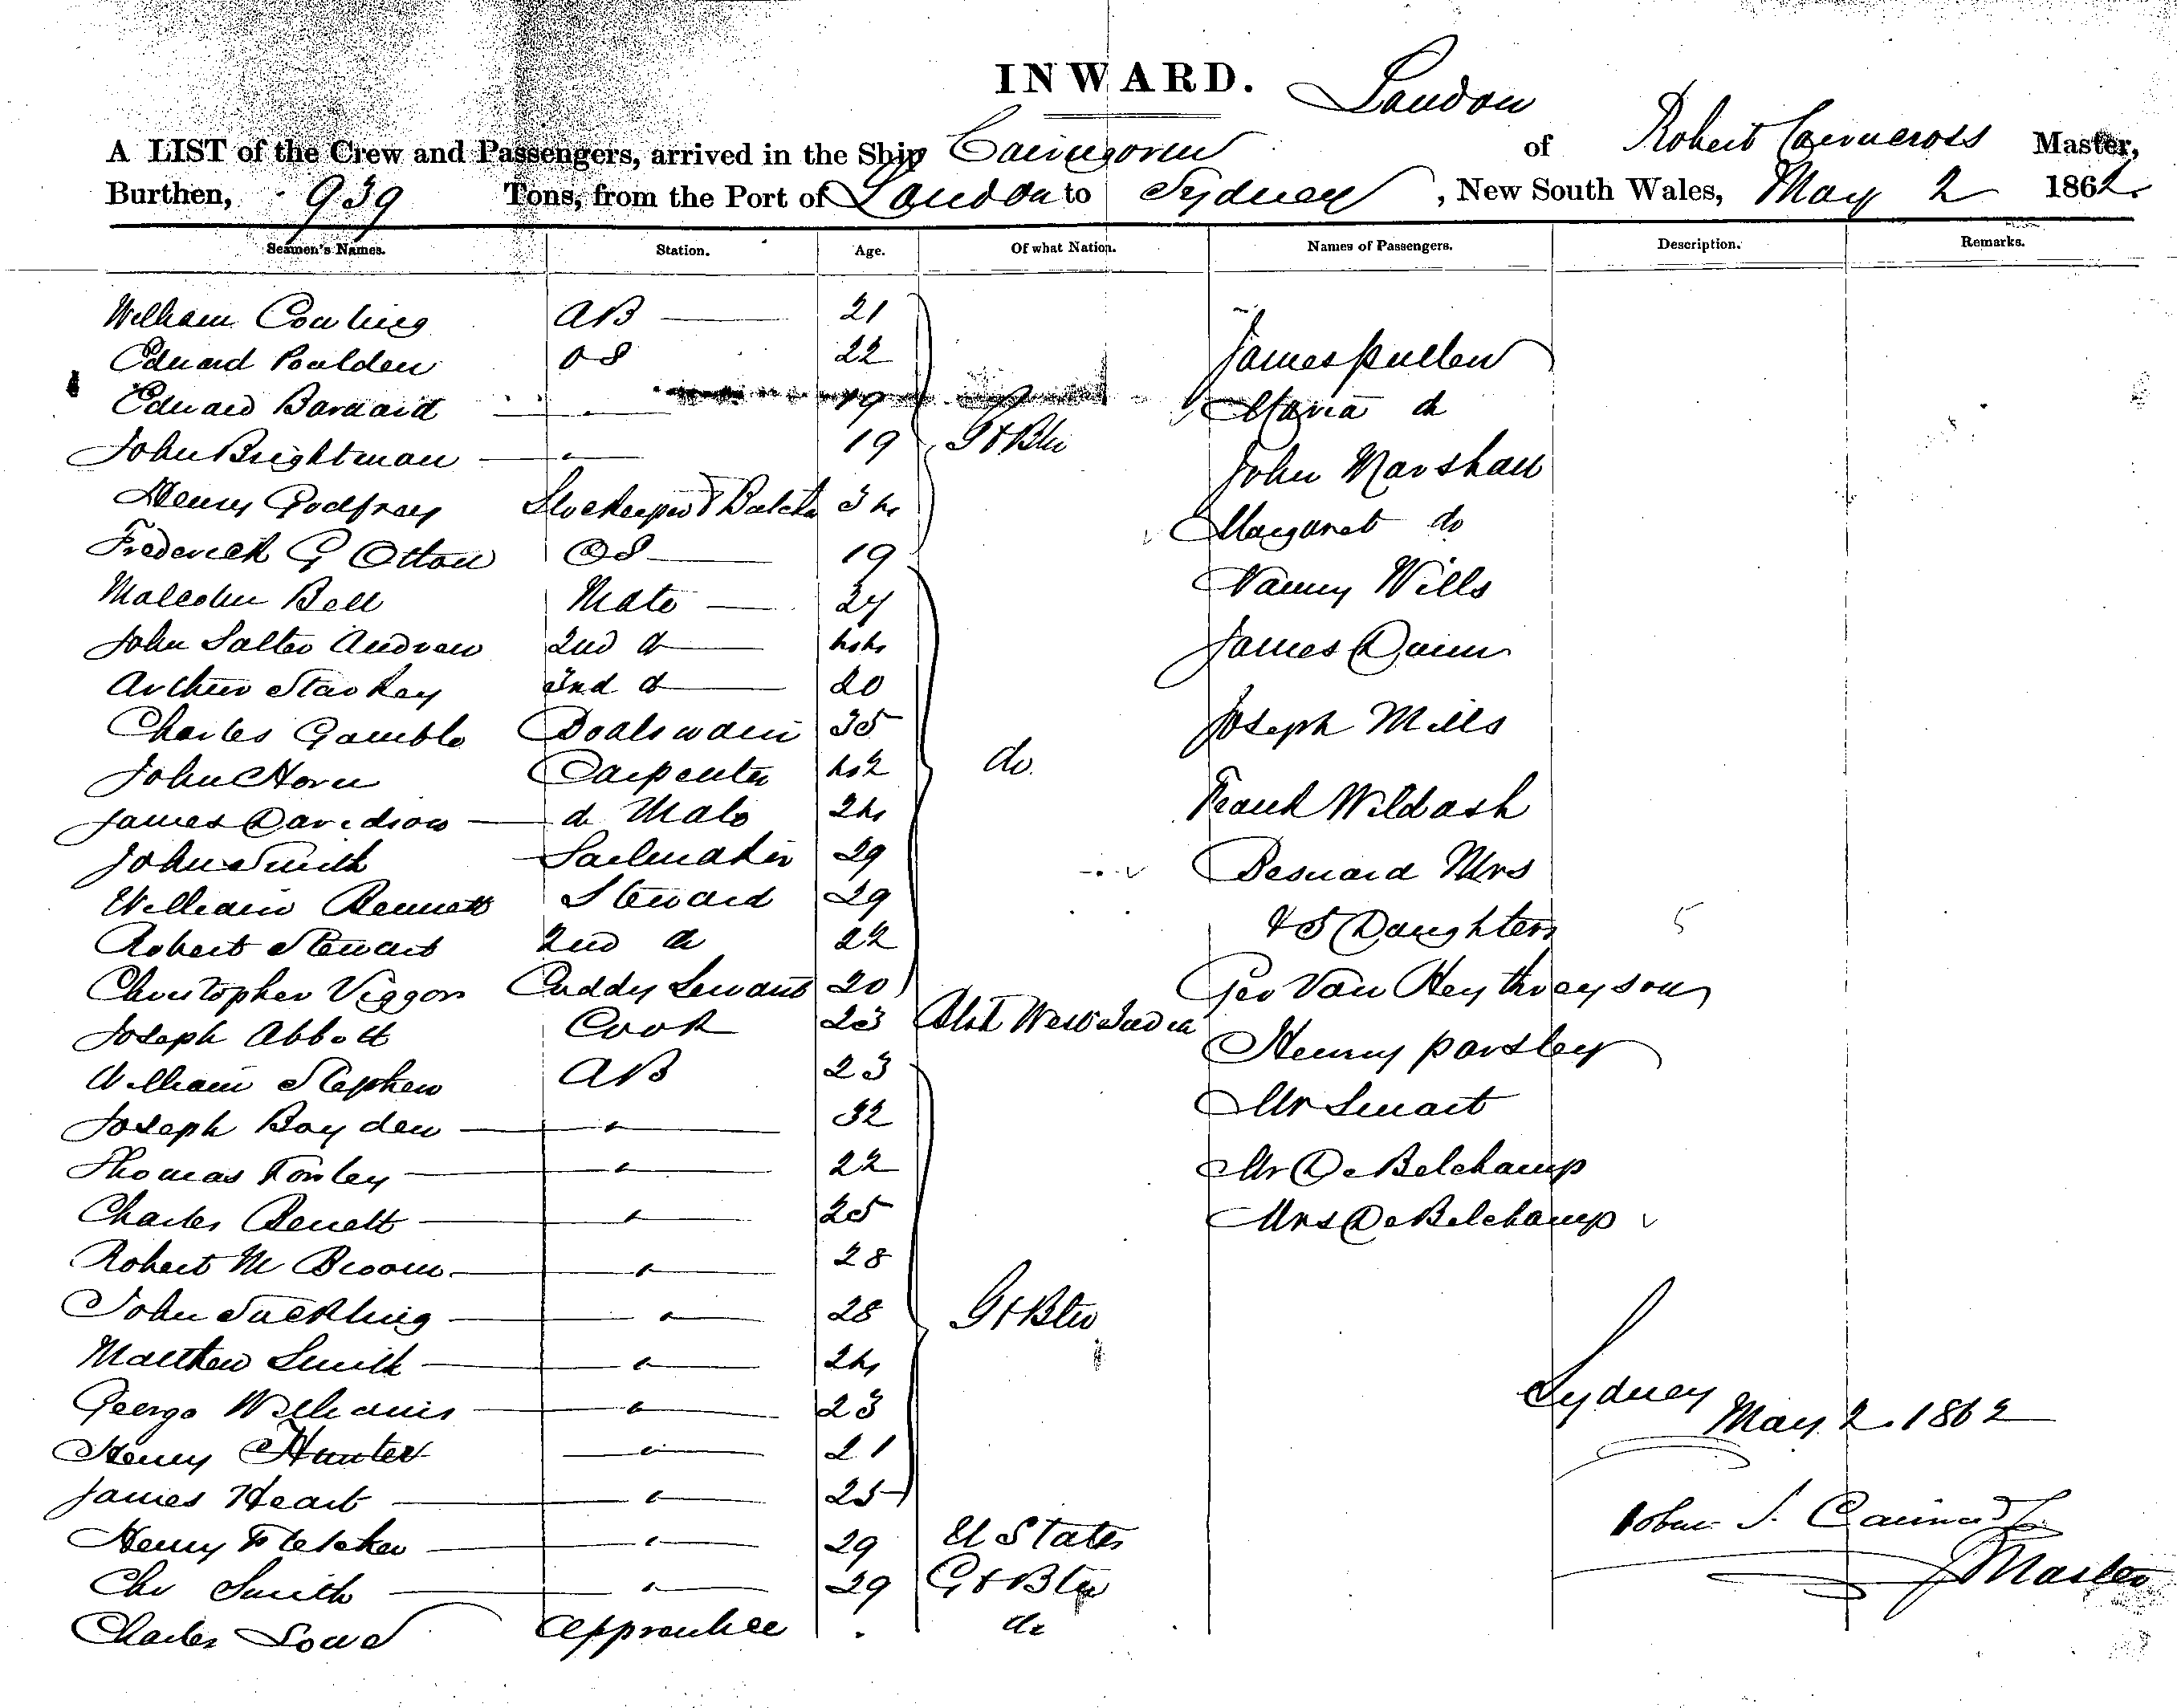 INWARD.
London
A LIST of the Crew and Passengers, arrived in the Ship Cairngorm of Robert Cairncross Master,
Burthen, 939 Tons, from the Port of London to Sydney, New South Wales, May 2 1862.
Seamen's Names. Station. Age. Of what Nation. Names of Passengers. Description. Remarks.
William Cowling AB 21
Edward Poulden OS 22 James pullen
Edward Barnard " 19 Maria do
John Brightman " 19 Gt Btn John Marshall
Henry Godfrey Storekeeper & Butcher 34 Margaret do
Frederick G Otton OS 19
Malcolm Bell Mate 27 Nanny Wills
John Salter Andrew 2nd do 44 James Quinn
Arthur Starkey 3rd do 20
Charles Gamble Boatswain 35 Joseph Mills
John Horn Carpenter 42 do.
James Davidson do Mate 24 Frank Wildash
John Smith Sailmaker 29 Besnard Mrs
William Bennett Steward 29 & 5 Daughters 5
Robert Stewart 2nd do 22
Christopher Viggors Cuddy Servant 20 Geo Van Heythuysen
Joseph Abbott Cook 23 West India Henry parsley
William Stephen AB 23 Mr Smart
Joseph Boyden " 32
Thomas Fowley " 22 Mr De Belchamp
Charles Benett " 25 Mrs De Belchamp
Robert M Broom " 28
John Suckling " 28 Gt Btn
Matthew Smith " 24
George Williams " 23 Sydney
May 2. 1862
Henry Hunter " 21
James Heart " 25
Henry Fletcher " 29 U States
Chs Smith " 29 Gt Btn Master
Charles Lowe Apprentice . do